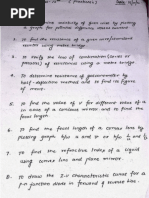 1. To determine resistivity of given wire by plotting
a graph for potential difference versus current.
2. To find the resistance of a given wire/standard
resistor using metre bridge.
3. To verify the law of combination (series or
parallel) of resistance using a metre bridge.
4. To determine resistance of galvanometer by
half-deflection method and to find its
figure of merit.
5. To find the value of v for different values of
u in case of concave mirror and to find
the focal length.
6. To find the focal length of a convex lens by
plotting graph b/w u and v or b/w 1/u and 1/v.
7. To find the refractive index of a liquid
using convex lens and plane mirror.
8. To draw the I-V characteristic curves for
a p-n junction diode in forward & reverse bias.